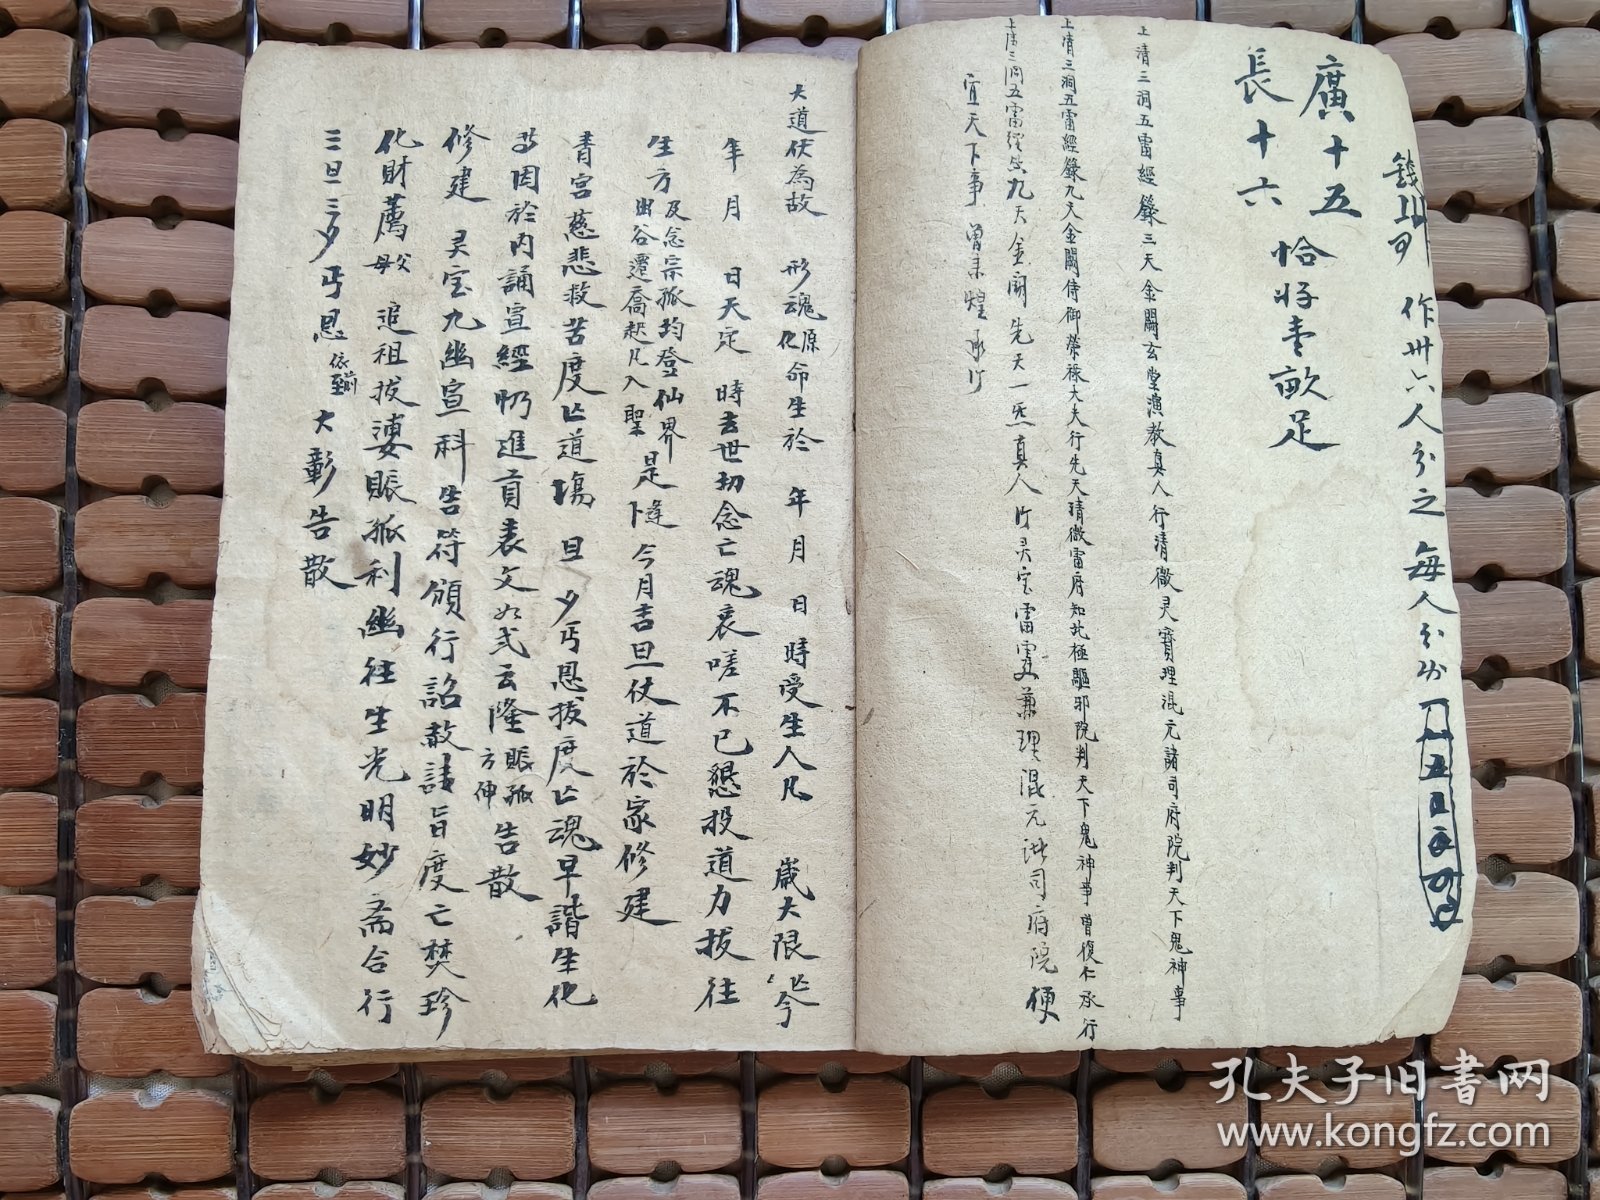 作卅六人分之 每人分出
廣十五 恰好壹畝足
長十六
上清三洞五雷經籙三天金闕玄堂演教真人行清微灵寶理混元諸司府院判天下鬼神事
上清三洞五雷經籙九天金闕侍御榮祿大夫行先天清微雷府知北極驅邪院判天下鬼神事曾復仁承行
上清三洞五雷經籙九天金闕先天一炁真人 灵宝雷霆兼理混元 司府院便
宜天下事 曾 煌承行
大道伏為故 形魂化原命生於 年 月 日 時受生人凡 歲大限 今
年 月 日天定 時去世切念亡魂哀嗟不已懇投道力拔往
生方及念宗孤均登仙界出谷遷喬超凡入聖 是 今月吉旦仗道於家修建
青宮慈悲救苦度亡道場 旦夕丐恩拔度亡魂早諧生化
因於內誦宣經仍進 表文如式云隆 賑孤方伸 告散
修建 灵宝九幽宣科告符頒行詔赦 旨度亡焚珍
化財薦父母 追祖拔 賑孤利幽往生光明妙斋合行
三旦三夕丐恩 依前 大彰告散
孔夫子旧書网
www.kongfz.com